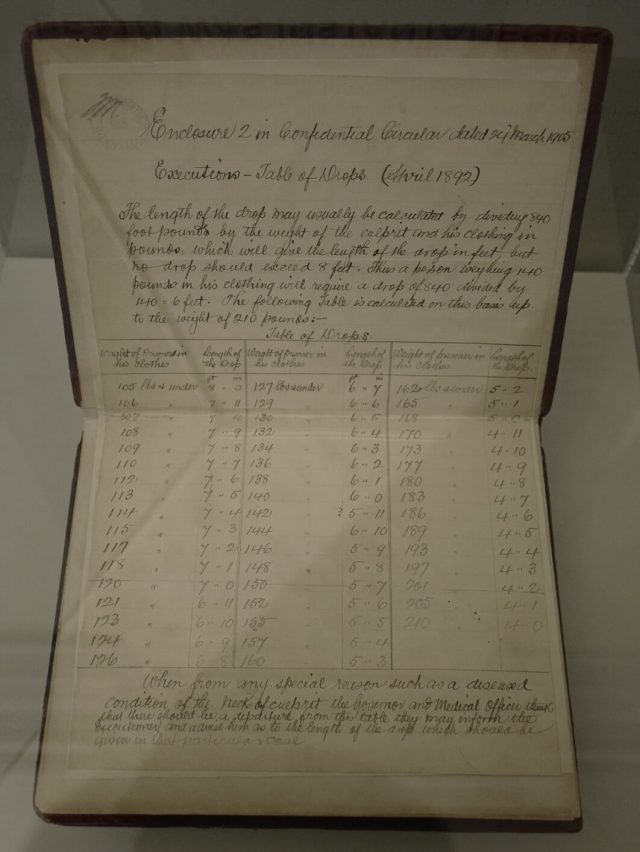 Enclosure 2 in Confidential Circular dated 24th March 1905
Executions – Table of Drops (April 1892)
The length of the drop may usually be calculated by dividing 840
foot pounds by the weight of the culprit and his clothing in
pounds, which will give the length of the drop in feet, but
no drop should exceed 8 feet. Thus a person weighing 140
pounds in his clothing will require a drop of 840 divided by
140 = 6 feet. The following Table is calculated on this basis up
to the weight of 210 pounds:–
Table of Drops
Weight of Prisoner in his Clothes Length of the Drop Weight of prisoner in his Clothes Length of the Drop Weight of prisoner in his Clothes Length of the Drop
ft in
105 lbs & under 8 .. 0 127 lbs & under 6 .. 7 162 lbs & under 5 .. 2
106 " 7 .. 11 129 " 6 .. 6 165 " 5 .. 1
107 " 7 .. 10 130 " 6 .. 5 168 " 5 .. 0
108 " 7 .. 9 132 " 6 .. 4 170 " 4 .. 11
109 " 7 .. 8 134 " 6 .. 3 173 " 4 .. 10
110 " 7 .. 7 136 " 6 .. 2 177 " 4 .. 9
112 " 7 .. 6 138 " 6 .. 1 180 " 4 .. 8
113 " 7 .. 5 140 " 6 .. 0 183 " 4 .. 7
114 " 7 .. 4 142 " ? 5 .. 11 186 " 4 .. 6
115 " 7 .. 3 144 " 6 .. 10 189 " 4 .. 5
117 " 7 .. 2 146 " 5 .. 9 193 " 4 .. 4
118 " 7 .. 1 148 " 5 .. 8 197 " 4 .. 3
120 " 7 .. 0 150 " 5 .. 7 201 " 4 .. 2
121 " 6 .. 11 152 " 5 .. 6 205 " 4 .. 1
123 " 6 .. 10 155 " 5 .. 5 210 " 4 .. 0
124 " 6 .. 9 157 " 5 .. 4
126 " 6 .. 8 160 " 5 .. 3
When from any special reason such as a diseased
condition of the neck of culprit the Governor and Medical Officer think
that there should be a departure from this table they may inform the
executioner, and advise him as to the length of the drop which should be
given in that particular case